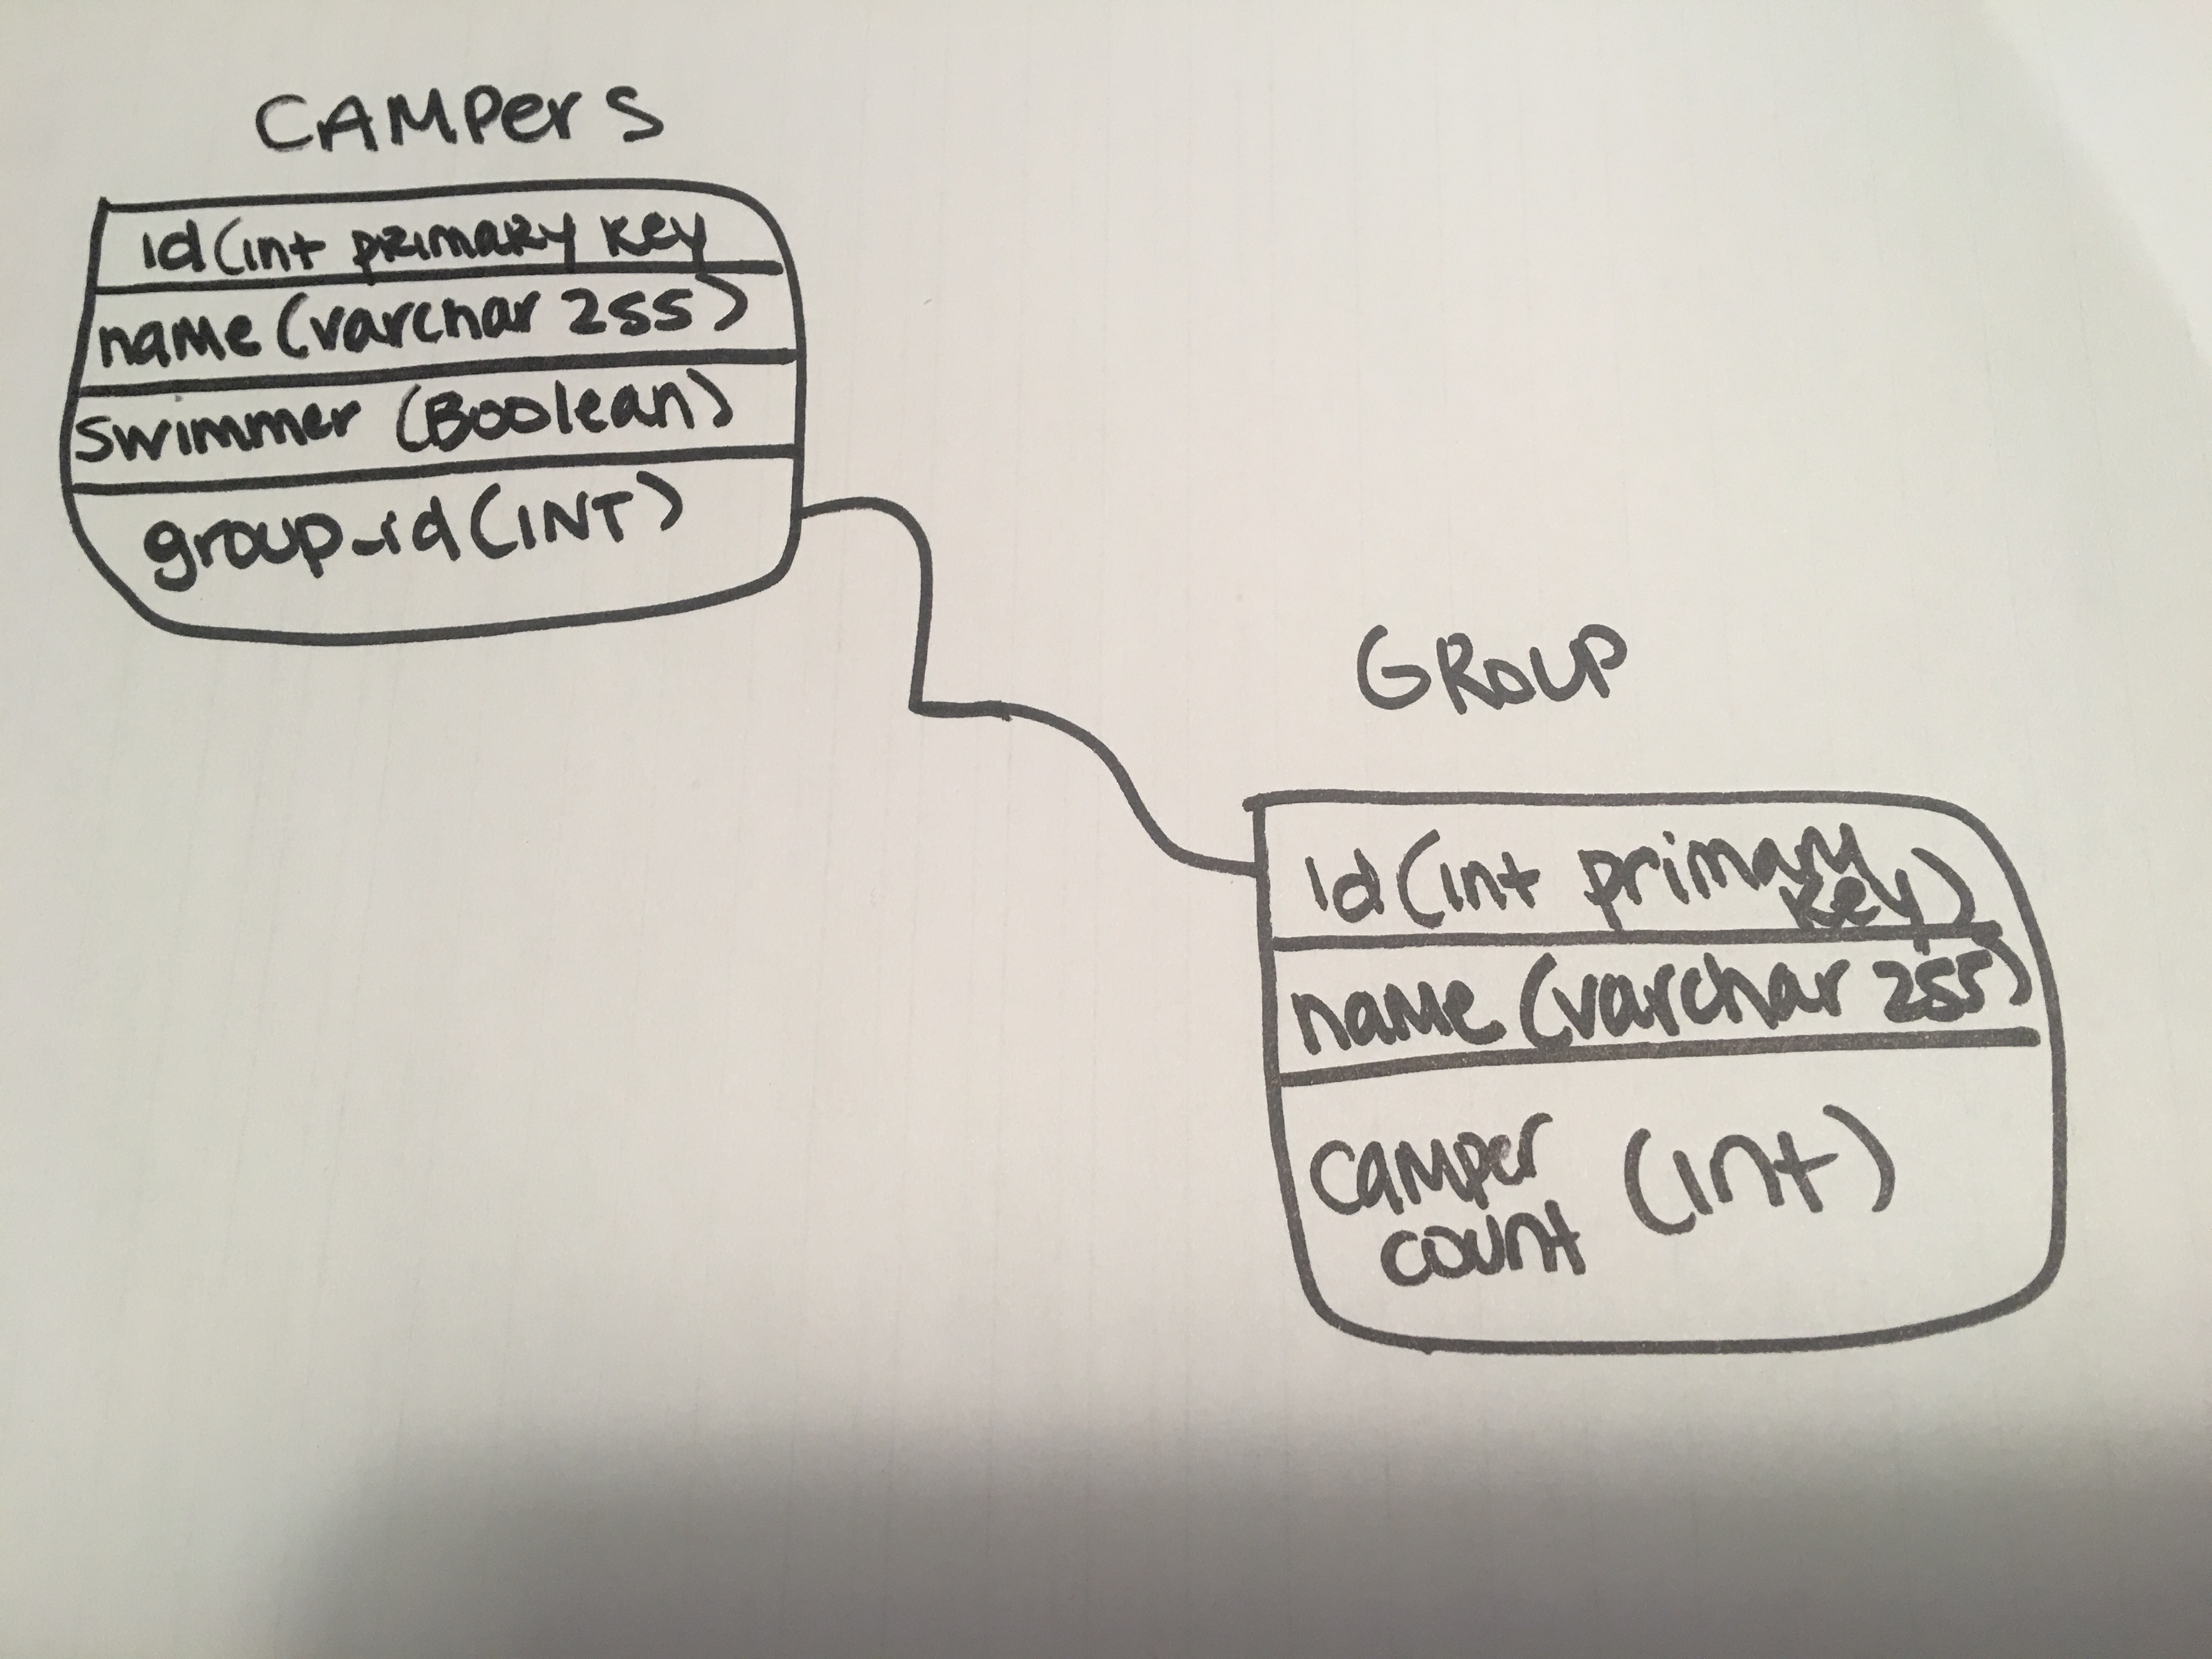 CAMPers
id(int primary key
name(varchar 255)
swimmer (Boolean)
group_id(INT)
GROUP
id(int primary
key)
name(varchar 255)
camper (int)
count